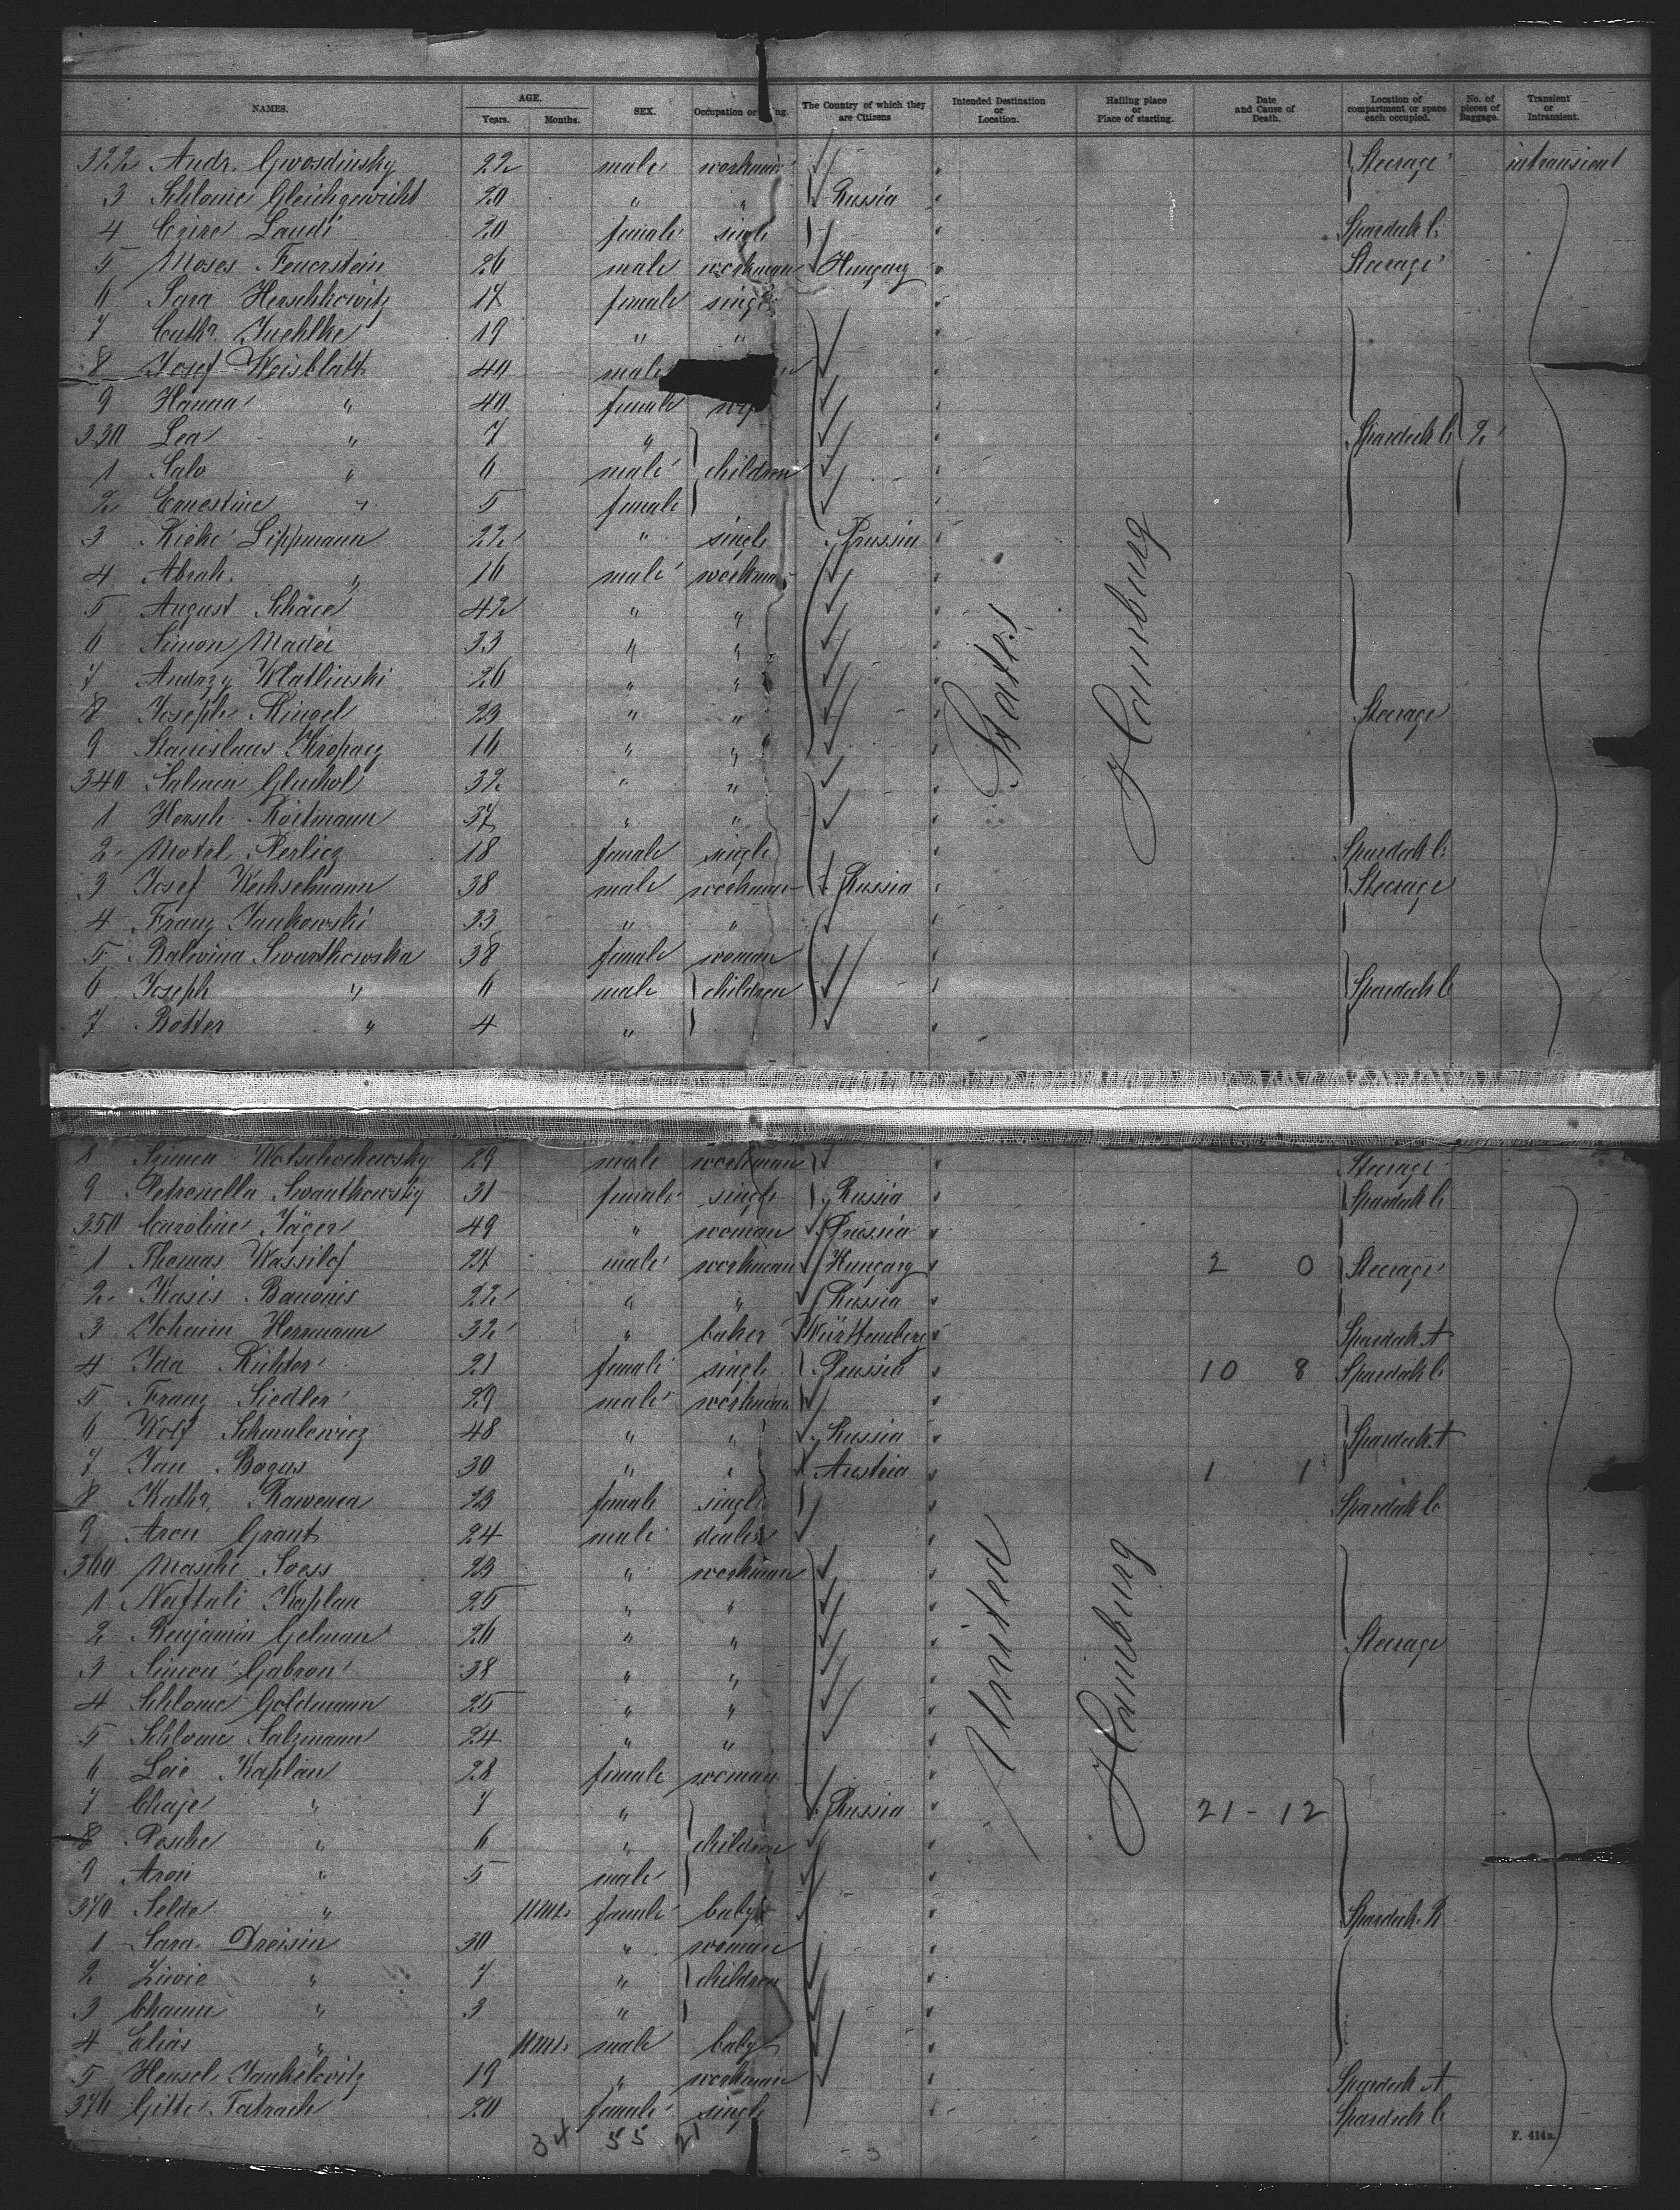 NAMES. AGE. Years. Months. SEX. Occupation or The Country of which they are Citizens Intended Destination or Location. Hailing place or Place of starting. Date and Cause of Death. Location of compartment or space each occupied. No. of pieces of Baggage. Transient or Intransient.
322 Andr. Gwosdinsky 22 male workman Steerage intransient
3 Schlome Gleichgewicht 20 " " Russia
4 Landi 20 female single Spardeck C.
5 Moses Feuerstein 26 male workman Hungary Steerage
6 Sara Herschkowitz 17 female single
7 Cathr. Juehlke 19 " "
8 Josef Weisblatt 40 male
9 Hanna " 40 female
330 Lea " 7 " Spardeck C. 2
1 Salo " 6 male children
2 Ernestine " 5 female
3 Rieke Lippmann 22 " single Prussia
4 Abrah. " 16 male workman
5 August 42 " "
6 Simon Madei 33 " "
7 Andrzy Wlatlinski 26 " "
8 Joseph Ringel 23 " " Steerage
9 Stanislaus 16 " "
340 Salmen 32 " "
1 Hersch Roitmann 37 " "
2 Motel Perlicz 18 female single Spardeck C.
3 Josef Wechselmann 38 male workman Russia Steerage
4 Franz Jankowski 33 " "
5 Balvina Swartkowska 38 female woman
6 Joseph " 6 male children Spardeck C
7 Botter " 4 "
States
Hamburg
8 29 male workman Steerage
9 Petronella Swantkowsky 31 female single Russia Spardeck C.
350 Caroline Jäger 49 " woman Prussia
1 Thomas Wassilof 24 male workman Hungary 2 0 Steerage
2 Kasis 22 " " Russia
3 Johann Herrmann 32 " baker Württemberg Spardeck A
4 Ida Richter 21 female single Prussia 10 8 Spardeck C.
5 Franz Siedler 29 male workman
6 Wolf Schmulewicz 48 " " Russia Spardeck A
7 Jan Bogus 30 " " Austria 1 1
8 Kathr. 23 female single Spardeck C.
9 Aron Grant 24 male dealer
360 Masche Soess 23 " workman
1 Naftali Kaplan 25 " "
2 Benjamin Gelman 26 " " Steerage
3 Simon Gabron 38 " "
4 Schlome Goldmann 25 " "
5 Schlome Salzmann 24 " "
6 Leie Kaplan 28 female woman
7 Chaje " 7 " Russia 21 - 12
8 Pesche " 6 " children
9 Aron " 5 male
370 Selde " 11 mts. female baby Spardeck B
1 Sara Dreisin 30 " woman
2 Ziwie " 7 " children
3 Chann " 3 "
4 Elias " 11 mts. male baby
5 Hensel Jankelovitz 19 " workman Spardeck A
376 Gitte Fatrach 20 female single Spardeck C.
United
Hamburg
34 55 21 - 3
F. 414a.